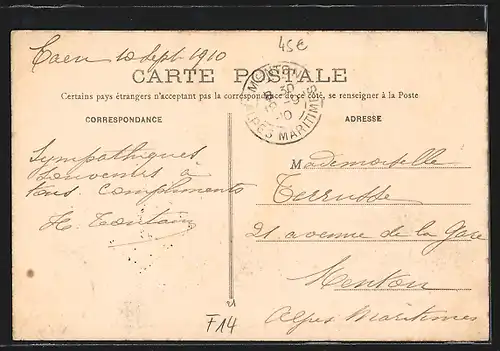 Caen 10 Sept 1910
45€
CARTE POSTALE
Certains pays étrangers n'acceptant pas la correspondance de ce côté, se renseigner à la Poste
CORRESPONDANCE
ADRESSE
ALPES MARITIMES
Sympathiques
souvenirs à
tous. Compliments
H.
Mademoiselle
21 avenue de la Gare
Menton
Alpes Maritimes
21
F14